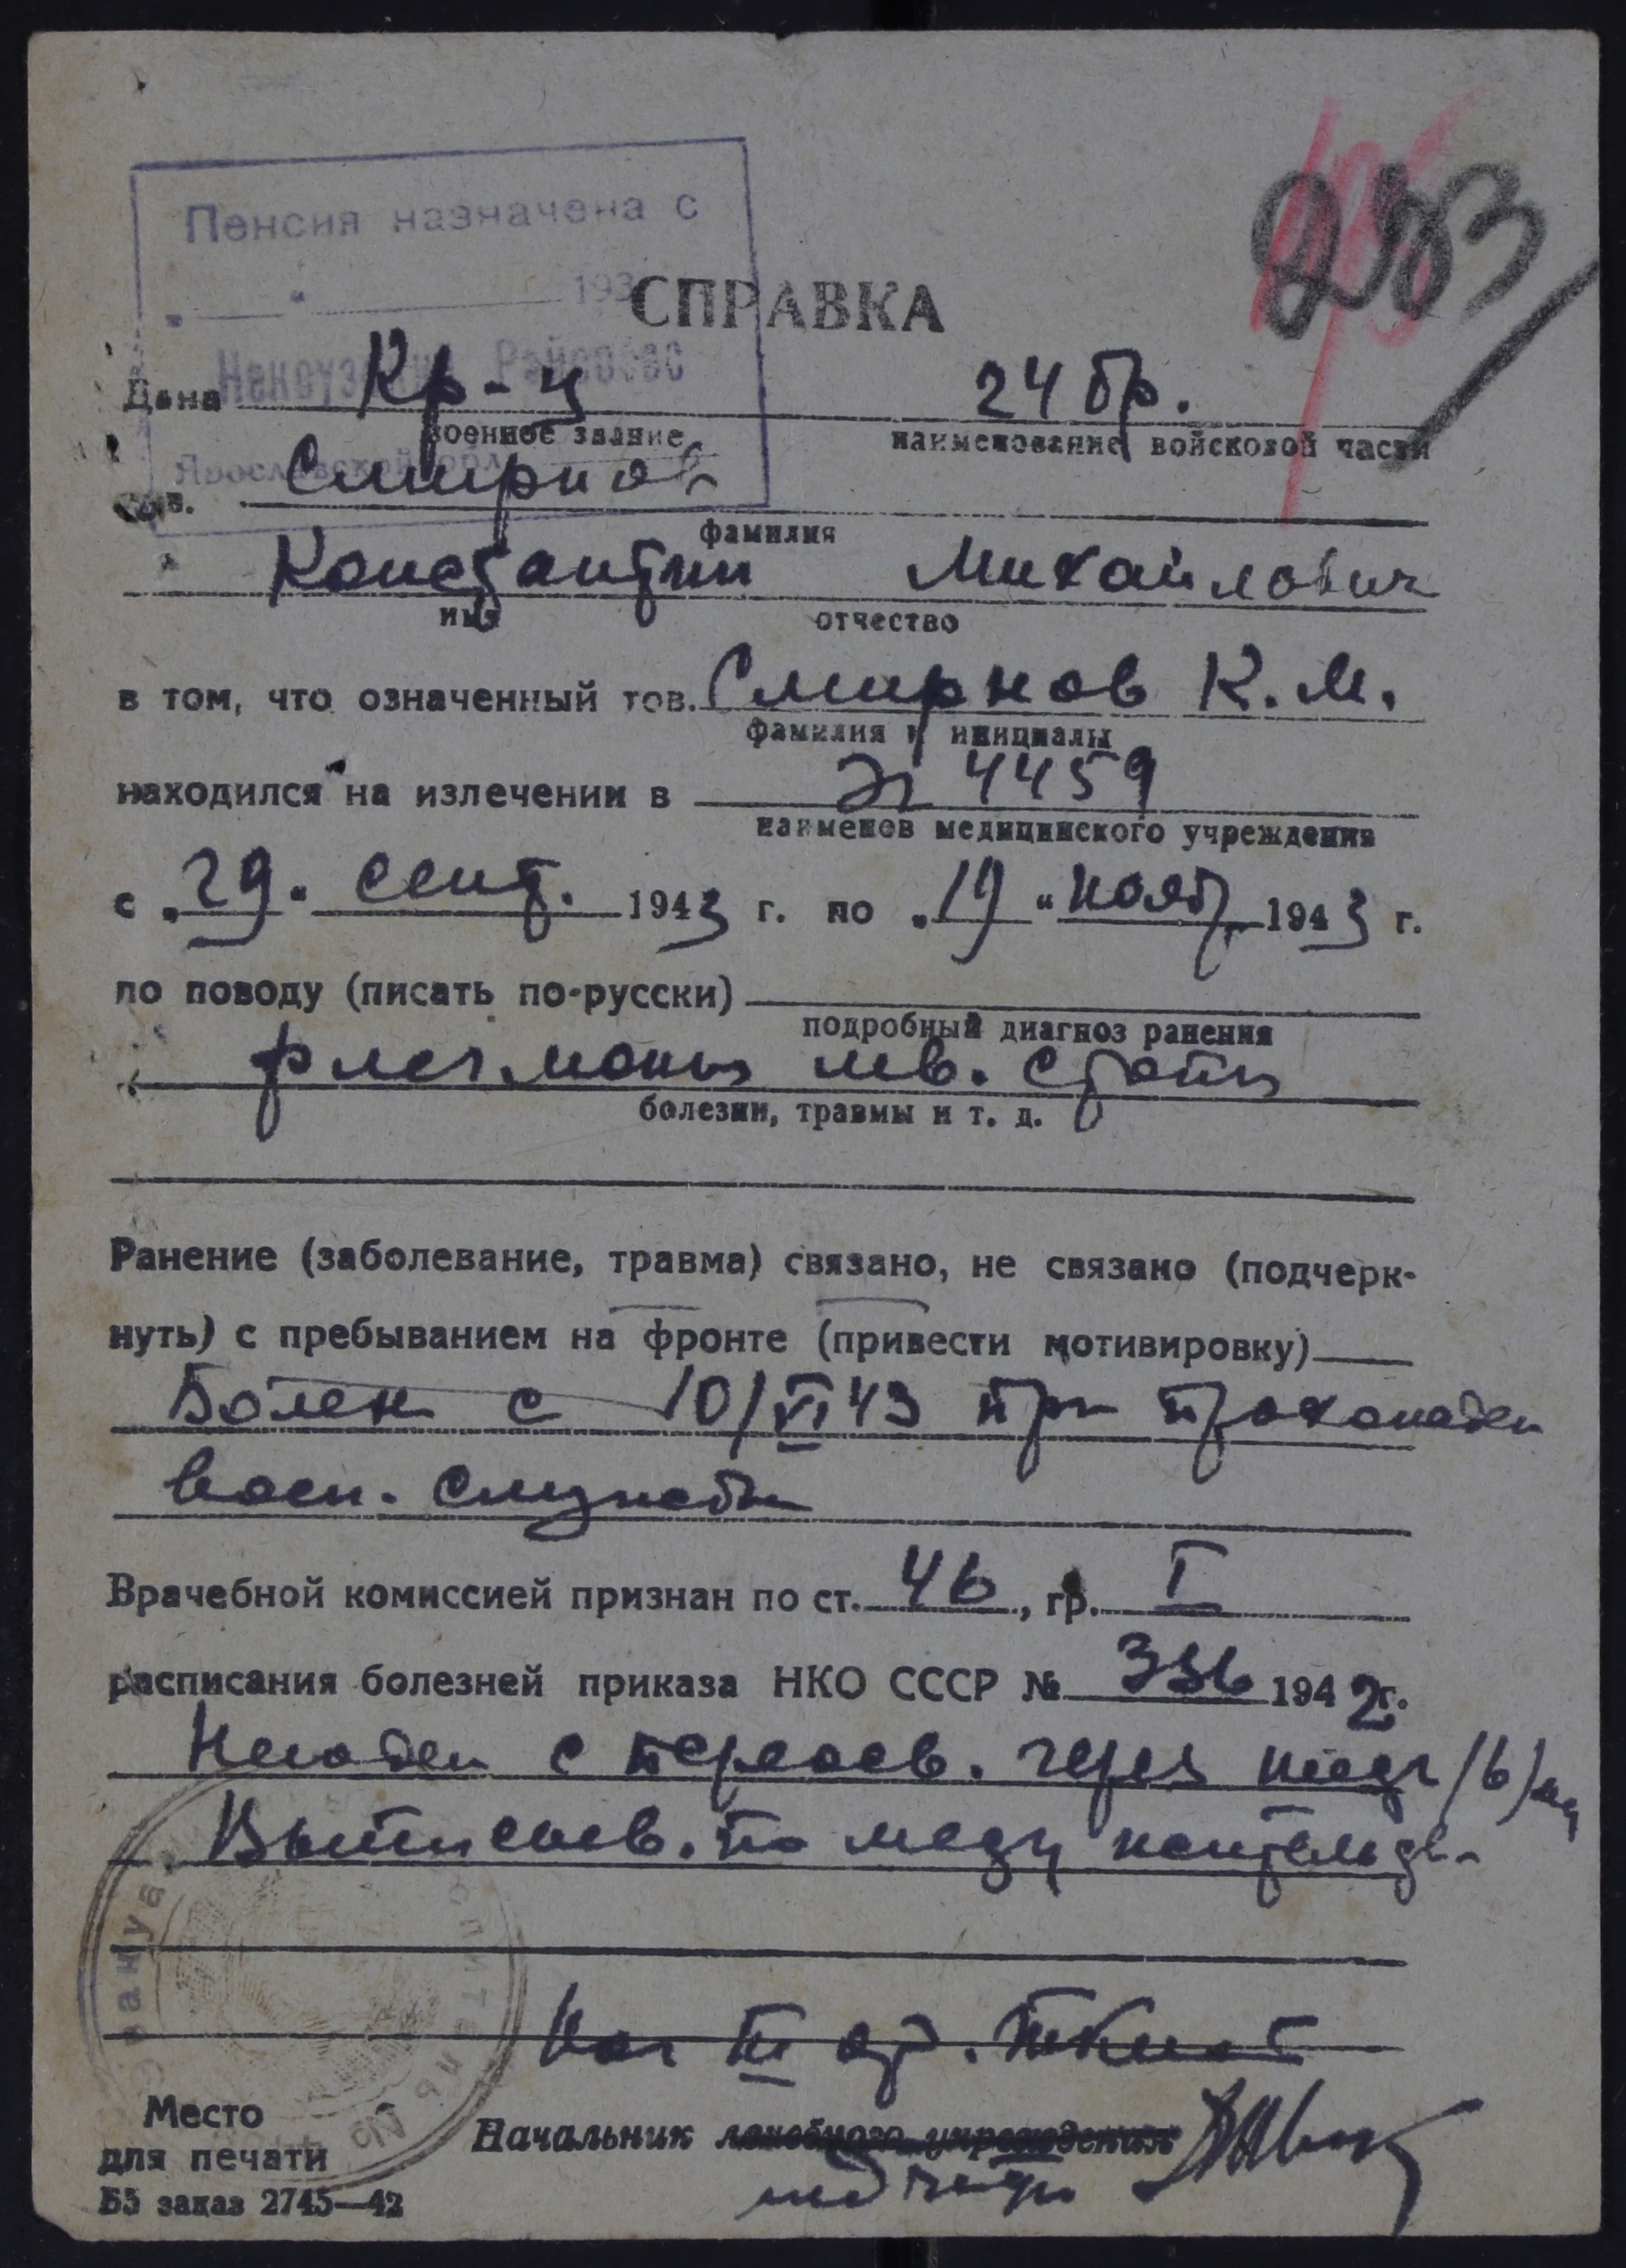 253
Пенсия назначена с
193
СПРАВКА
Некоузский Райсобес
Дана Кр-ц 24 бр.
военное звание наименование войсковой части
Ярославской обл.
тов. Смирнов
фамилия
Константин Михайлович
имя отчество
в том, что означенный тов. Смирнов К. М.
фамилия и инициалы
находился на излечении в Эг 4459
наименов медицинского учреждения
с „29" сент. 1943 г. по „19" нояб 1943 г.
по поводу (писать по-русски)
подробный диагноз ранения
флегмоны лев. стопы
болезни, травмы и т. д.
Ранение (заболевание, травма) связано, не связано (подчерк-
нуть) с пребыванием на фронте (привести мотивировку)
Болен с 10/VI 43 при прохожден
воен. службы
Врачебной комиссией признан по ст. 46, гр. I
расписания болезней приказа НКО СССР № 336 1942 г.
Негоден с переосв. через шесть /6/ м
Выписыв. по месту жительств
Нач III от.
Место
для печати
Начальник лечебного учреждения
мед части
Б5 заказ 2745—42